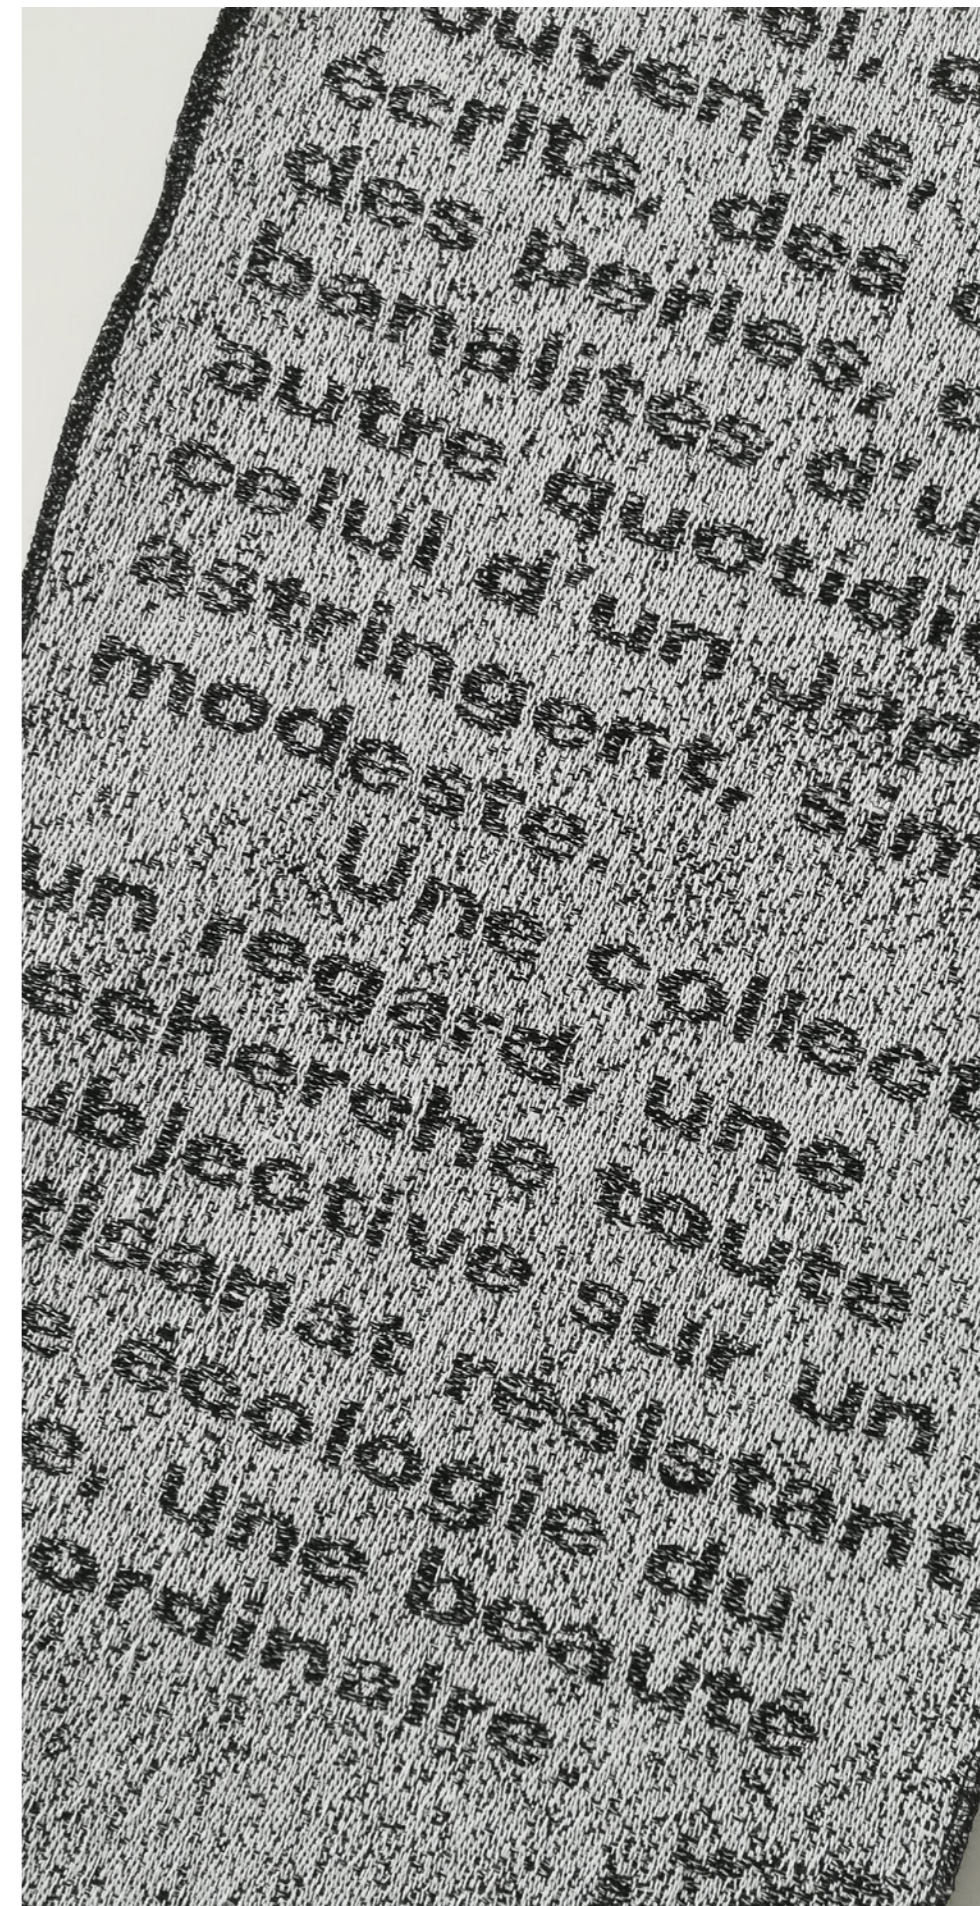 ouvenirs,
écrits, des
des perles, d
banalités d'u
autre quotidi
celui d'un Jap
astringent, sim
modeste.
Une collect
un regard, une
echerche toute
ubjective sur un
tisanat résistant
e écologie du
o, une beauté
ordinaire.